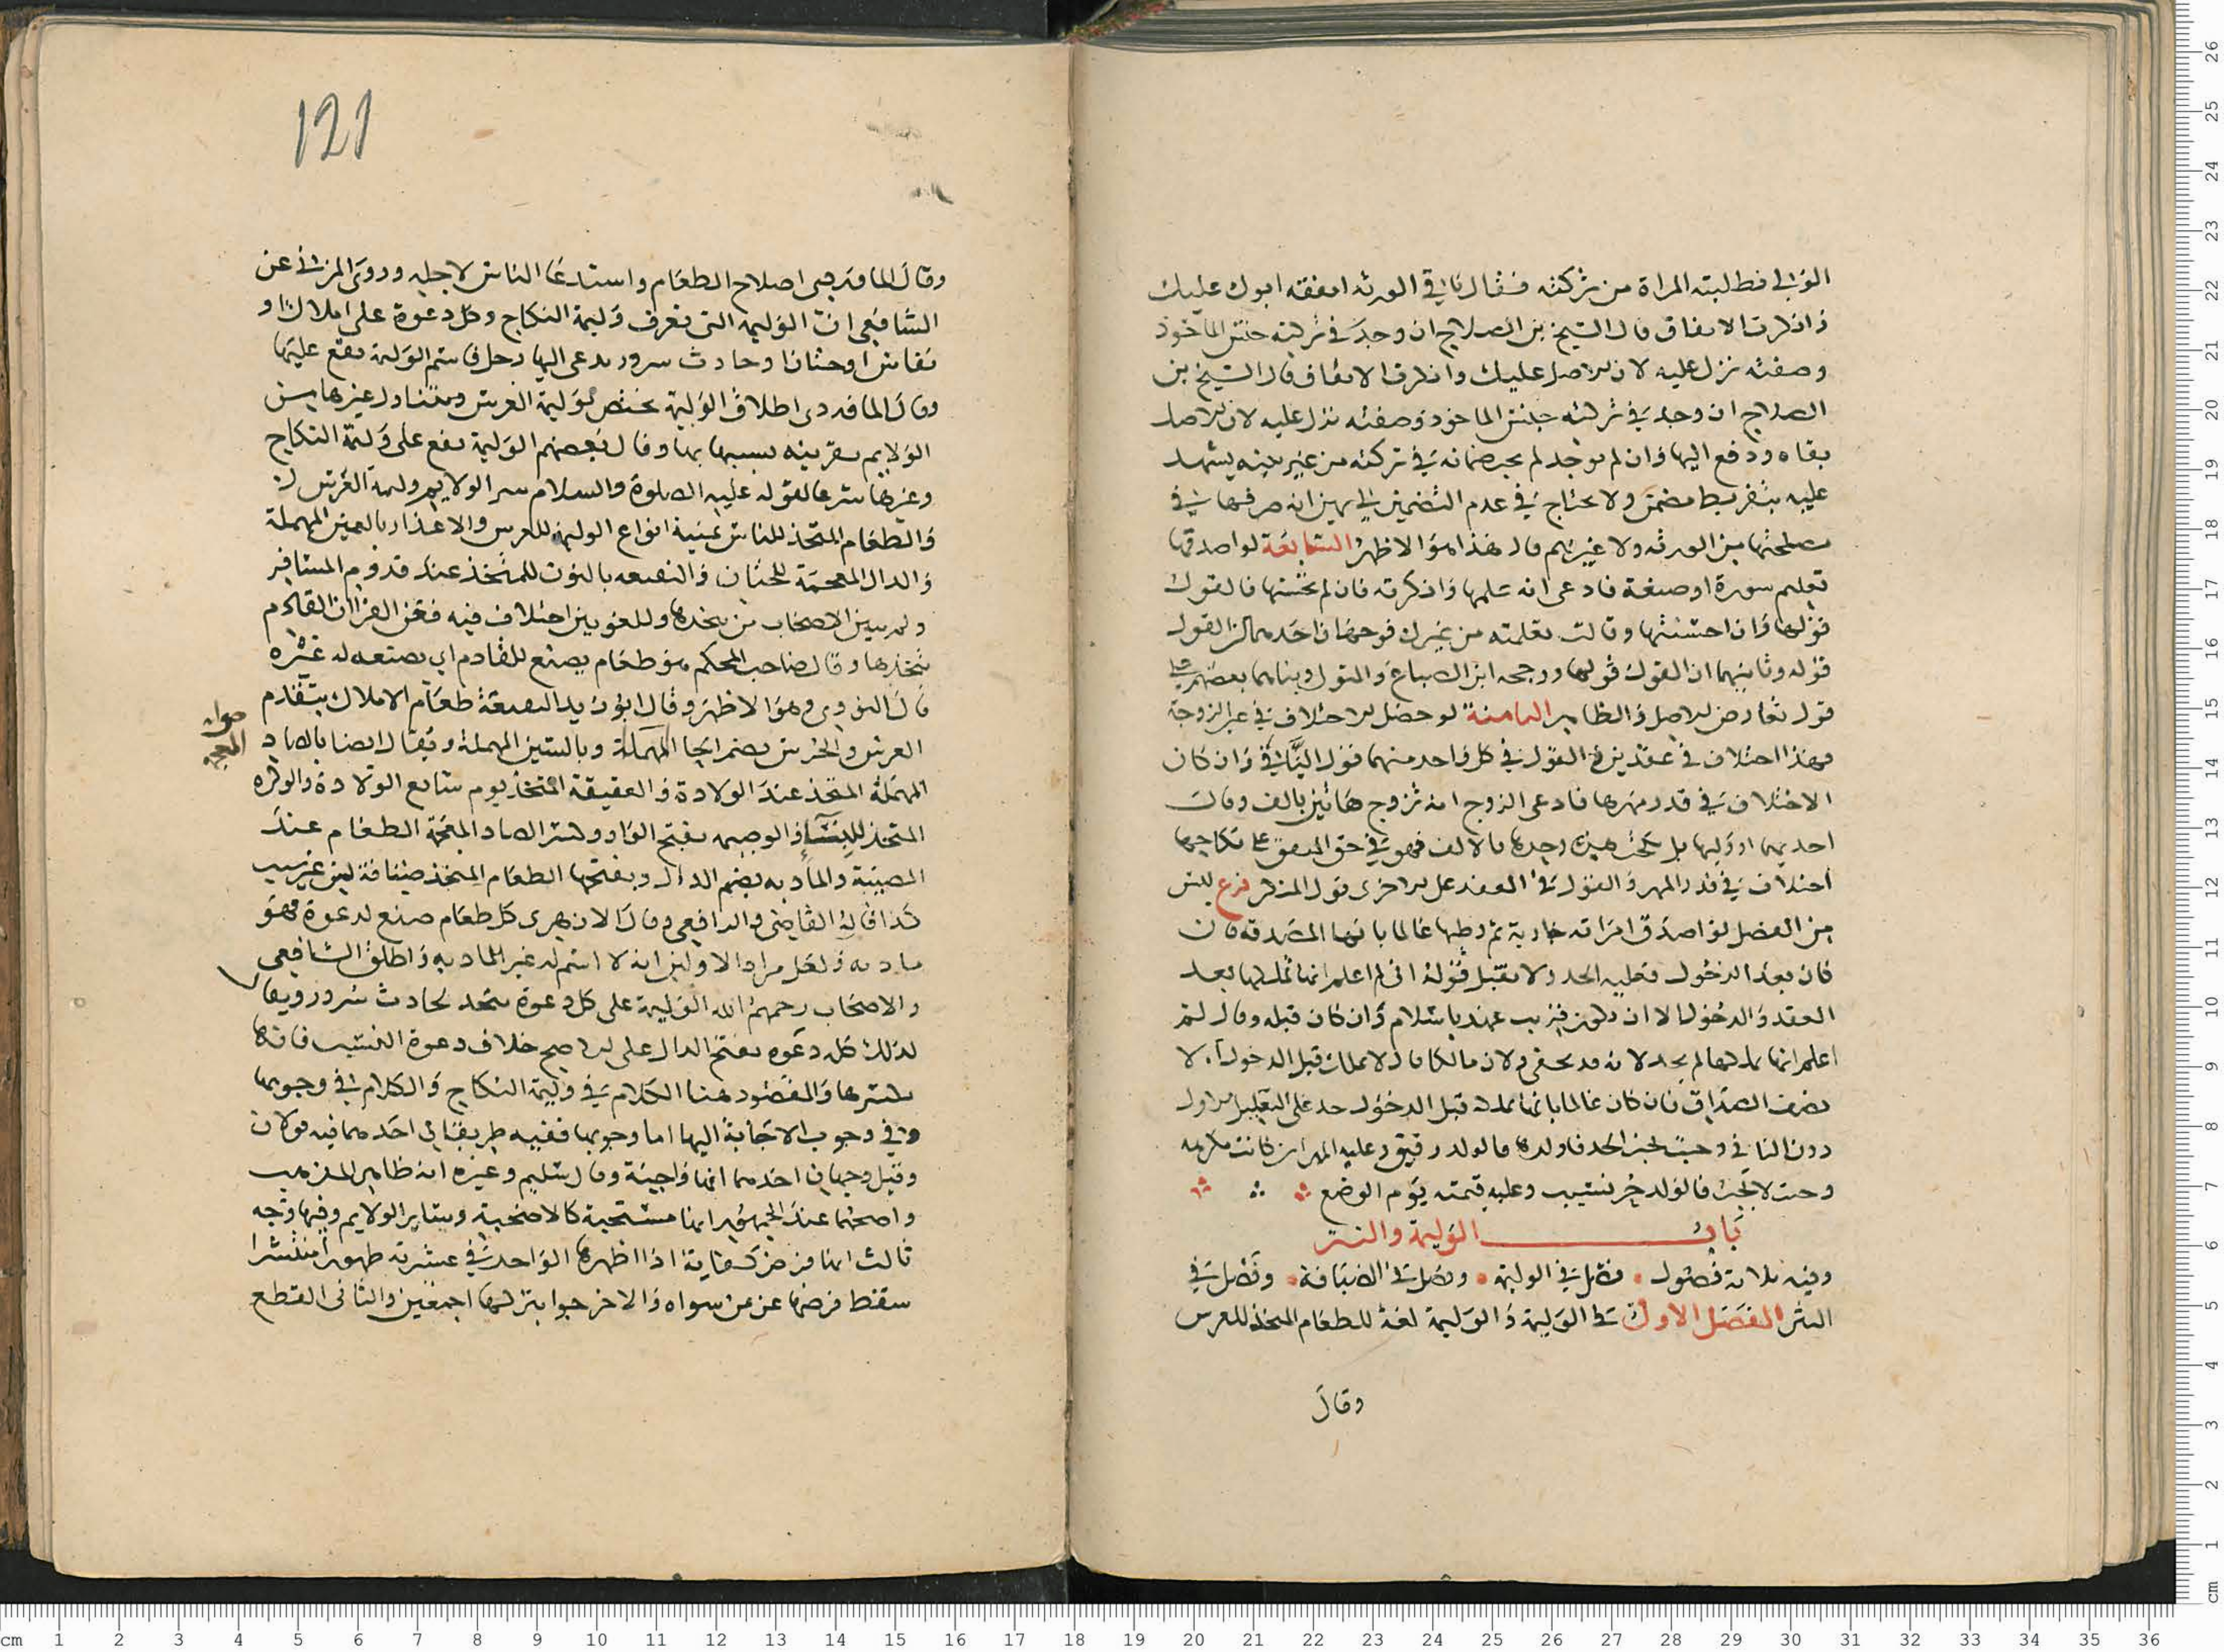 الولي فطالبته المراة من تركته فقال باقي الورثه انفقه ابوك عليك
وانكرت الانفاق قال الشيخ بن الصلاح ان وجد في تركته جنس الماخوذ
وصفته نزل عليه لان الاصل عليك وانكرت الانفاق قال الشيخ بن
الصلاح ان وجد في تركته جنس الماخوذ وصفته نزل عليه لان الاصل
بقاه ودفع اليها وان لم يوجد لم يجب ضمانه في تركته من غير بينه يشهد
عليه بتفريط مضمن ولا يحتاج في عدم التضمين الي يمين انه صرفها في
مصلحتها من الورثه ولا غيرهم قال هذا هو الاظهر السابعة لو اصدقها
تعليم سورة او صنعة فادعى انه علمها وانكرته فان لم تحسنها فالقول
قولها وان احسنتها وقالت تعلمته من غيرك فوجهان احدهما ان القول
قوله وثانيهما ان القول قولها ورجحه ابن الصباغ والمتولي وبناهما بعضهم على
قول تعارض الاصل والظاهر الثامنة لو حصل الاختلاف في عين الزوجة
فهذا اختلاف في عقدين فالقول في كل واحد منهما قول النافي وان كان
الاختلاف في قدر مهرها فادعى الزوج انه تزوج هاتين بالف وقالت
احديهما او وليها بل نكحت هذه وحدها بالالف فهو في حق المتفق على نكاحها
اختلاف في قدر المهر والقول في العقد على الاخرى قول المنكر فرع ليس
من الفصل لو اصدق امراته جارية ثم وطيها عالما بانها المصدقه فان
كان بعد الدخول فعليه الحد ولا تقبل قوله اني لم اعلم انها تملكها بعد
العقد والدخول الا ان يكون قريب عهد باسلام وان كان قبله وقال لم
اعلم انها تملكها لم يحد لانه قد يخفى ولان مالكا قال لا يملك قبل الدخول الا
نصف الصداق فان كان عالما بانها تملك قبل الدخول حد على التعليل الاول
دون الثاني وحيث يجب الحد فاولدها فالولد رقيق وعليه المهر ان كانت مكرهه
وحيث لا يجب فالولد حر نسيب وعليه قيمته يوم الوضع
باب الوليمة والنثر
وفيه ثلاثة فصول فصل في الوليمة وفصل في الضيافة وفصل في
النثر الفصل الاول في الوليمة والوليمة لغة للطعام المتخذ للعرس
وقال
121
وقال الماوردي اصلاح الطعام واستدعا الناس لاجله وروى المزني عن
الشافعي ان الوليمة التي تعرف وليمة النكاح وكل دعوة على املاك او
نفاس او ختان او حادث سرور يدعى اليها رجل فاسم الوليمة يقع عليها
وقال الماوردي اطلاق الوليمة يختص بوليمة العرس ويتناول غيرها من
الولايم بقرينه بسببها بها وقال بعضهم الوليمة يقع على وليمة النكاح
وغيرها شرعا لقوله عليه الصلوة والسلام شر الولايم وليمة العرس
والطعام المتخذ للناس ثمنية انواع الوليمة للعرس والاعذار بالعين المهملة
والدال المعجمة للختان والنقيعه بالنون للمتخذ عند قدوم المسافر
ولم يبين الاصحاب من يتخذها وللغويين اختلاف فيه فعن الفراان القادم
يتخذها وقال صاحب المحكم هو طعام يصنع للقادم اي يصنعه له غيره
قال النووي وهو الاظهر وقال ابو زيد النقيعة طعام الاملاك يتقدم
العرس والخرس بضم الخا المهملة وبالسين المهملة ويقال ايضا بالصاد
صوابه
المعجمه
المهملة المتخذ عند الولادة والعقيقة المتخذ يوم سابع الولادة والوكره
المتخذ للبنآ والوضيمه بفتح الواو وكسر الصاد المعجمة الطعام عند
المصيبة والمادبه بضم الدال وبفتحها الطعام المتخذ ضيافة لغير سبب
كذا قاله القاضي والرافعي وقال الازهري كل طعام صنع لدعوة فهو
مادبه ولعل مراد الاولين انه لا اسم له غير المادبه واطلق الشافعي
والاصحاب رحمهم الله الوليمة على كل دعوة تتخذ لحادث سرور ويقال
لذلك كل دعوه بفتح الدال على الاصح خلاف دعوة النسب فانها
بكسرها والمقصود هنا الكلام في وليمة النكاح والكلام في وجوبها
وفي وجوب الاجابة اليها اما وجوبها ففيه طريقان احدهما فيه قولان
وقيل وجهان احدهما انها واجبة وقال سليم وغيره انه ظاهر المذهب
واصحهما عند الجمهور انها مستحبة كالاضحية وساير الولايم وفيها وجه
ثالث انها فرض كفاية اذا اظهرها الواحد في عشيرته ظهورا منتشرا
سقط فرضها عن من سواه والا خرجوا بتركها اجمعين والثاني القطع